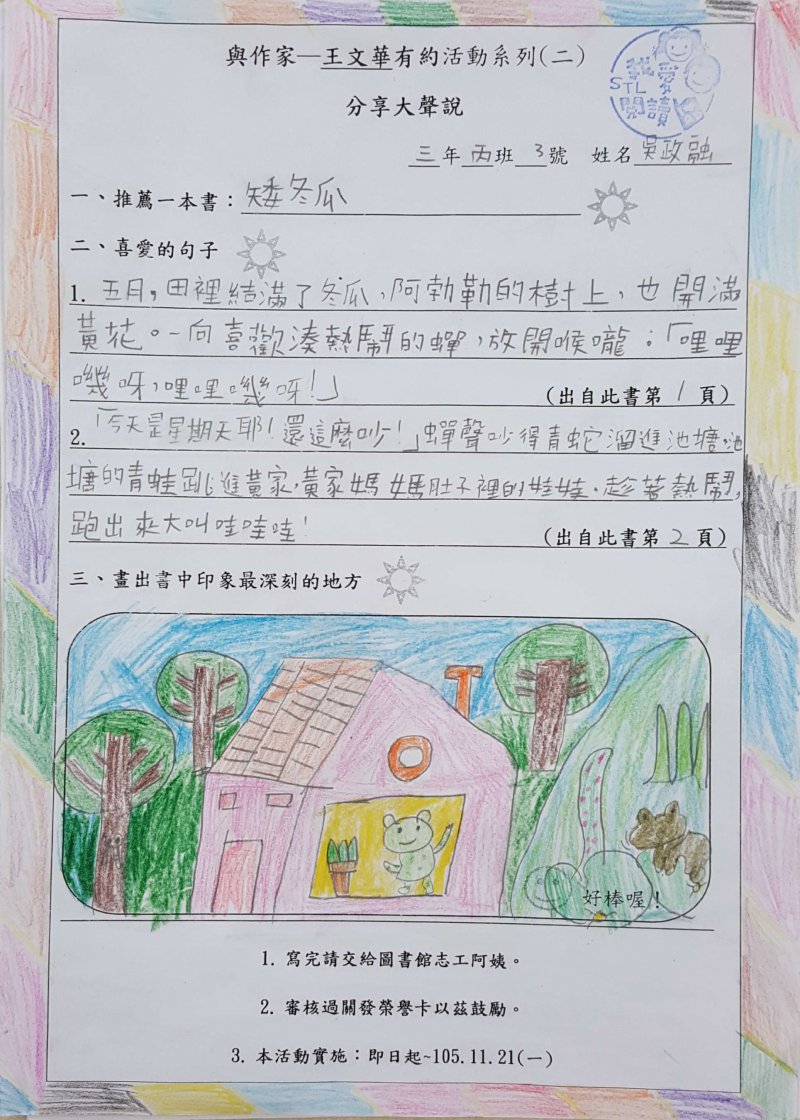 與作家─王文華有約活動系列(二)
我愛
STL
閱讀
分享大聲說
三年丙班 3號 姓名吳政融
一、推薦一本書：矮冬瓜
二、喜愛的句子
1. 五月，田裡結滿了冬瓜，阿勃勒的樹上，也開滿
黃花。一向喜歡湊熱鬧的蟬，放開喉嚨：「哩哩
嘰呀，哩哩嘰呀！」 (出自此書第1頁)
2. 「今天是星期天耶！還這麼吵！」蟬聲吵得青蛇溜進池塘，池
塘的青蛙跳進黃家，黃家媽媽肚子裡的娃娃，趁著熱鬧，
跑出來大叫哇哇哇！ (出自此書第2頁)
三、畫出書中印象最深刻的地方
好棒喔！
1. 寫完請交給圖書館志工阿姨。
2. 審核過關發榮譽卡以茲鼓勵。
3. 本活動實施：即日起~105.11.21(一)